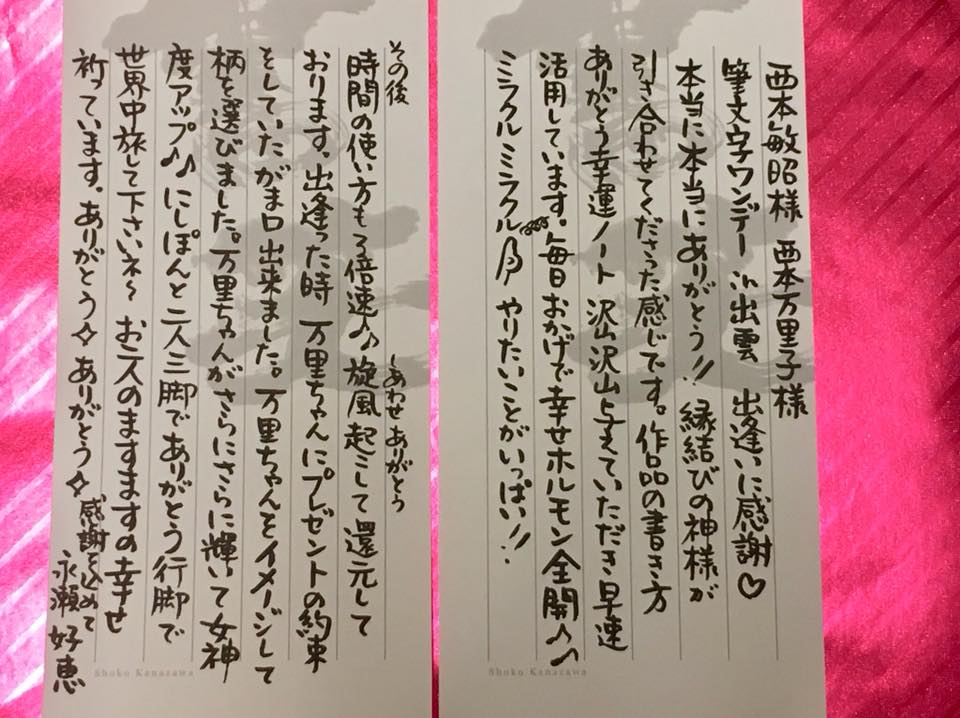 西本敏昭様 西本万里子様
筆文字ワンデー in出雲 出逢いに感謝♡
本当に本当にありがとう!! 縁結びの神様が
引き合わせてくださった感じです。作品の書き方
ありがとう幸運ノート 沢山沢山与えていただき早速
活用しています。毎日おかげで幸せホルモン全開♪♪
ミラクルミラクル やりたいことがいっぱい!!
Shoko Kanazawa
その後 しあわせありがとう
時間の使い方も3倍速♪♪旋風起こして還元して
おります。出逢った時 万里ちゃんにプレゼントの約束
をしていたがま口出来ました。万里ちゃんをイメージして
柄を選びました。万里ちゃんがさらにさらに輝いて女神
度アップ♪♪ にしぽんと二人三脚でありがとう行脚で
世界中旅して下さいネ〜 お二人のますますの幸せ
祈っています。ありがとう☆ありがとう☆感謝を込めて
永瀬 好恵
Shoko Kanazawa